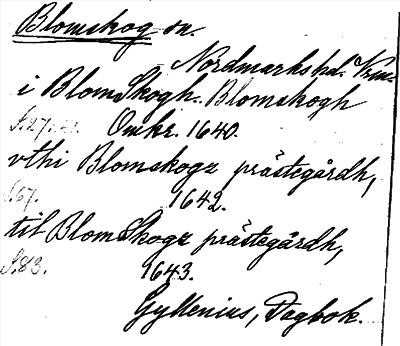 Blomskog sn.
Nordmarks hd. Vrm.
i BlomSkogh. Blomskogh
S. 27. Omkr. 1640.
vthi Blomskogz prästegårdh,
S. 67. 1642.
til BlomSkogz prästegårdh,
S. 83. 1643.
Gyllenius, Dagbok.